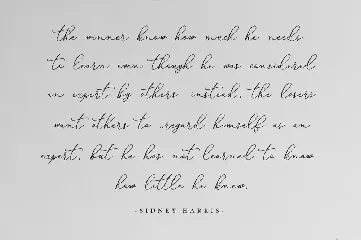 the winner know how much he needs
to learn even though he was considered
an expert by others instead, the losers
want others to regard himself as an
expert, but he has not learned to know
how little he knew.
-SIDNEY HARRIS-